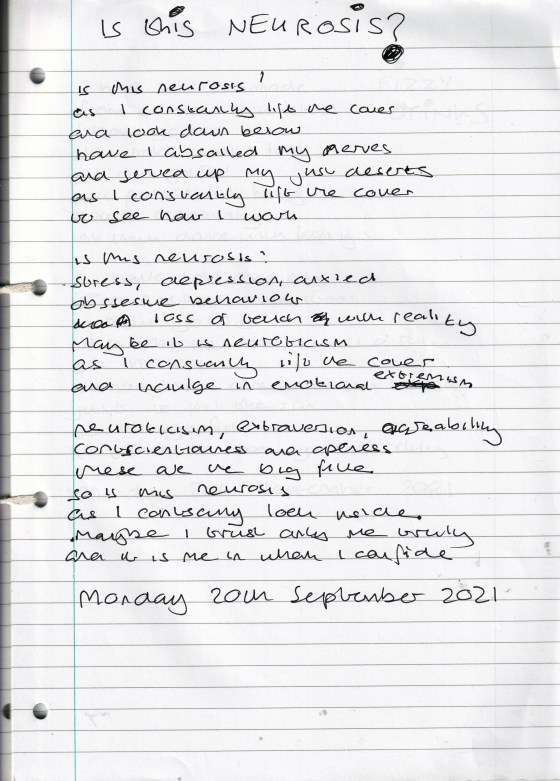 Is this NEUROSIS?
is this neurosis?
as I constantly lift the cover
and look down below
have I absailed my nerves
and served up my just deserts
as I constantly lift the cover
to see how I work
is this neurosis?
stress, depression, anxied
obssesive behaviour
loss of touch with reality
Maybe it is neuroticism
as I constantly lift the cover
and indulge in emotional extremism
neuroticism, extraversion, agreability
contscientiousness and openess
these are the big five
so is this neurosis
as I constantly look inside.
Maybe I trust only me truly
and it is me in whom I confide
Monday 20th September 2021